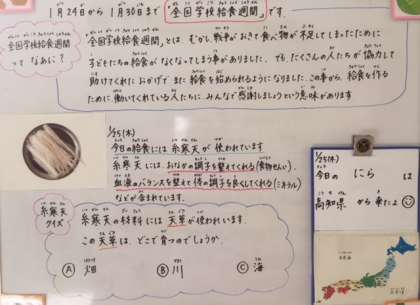 1月24日から1月30日まで「全国学校給食週間」です
全国学校給食週間
ってなあに？
全国学校給食週間とは、むかし戦争がおきて食べ物が不足してしまったために
子どもたちの給食がなくなってしまう事がありました。でもたくさんの人たちが協力して
助けてくれたおかげでまた給食を始められるようになりました。この事から、給食を作る
ために働いてくれている人たちにみんなで感謝しましょうという意味があります
1/25(木)
今日の給食には糸寒天が使われています
糸寒天には、おなかの調子を整えてくれる(食物せんい)
血液のバランスを整えて体の調子を良くしてくれる(ミネラル)
などが含まれています。
糸寒天
クイズ
糸寒天の材料には天草が使われています。
この天草は、どこで育つのでしょうか。
Ⓐ 畑 Ⓑ 川 Ⓒ 海
1/25(木)
今日の にら は
高知県 から来たよ